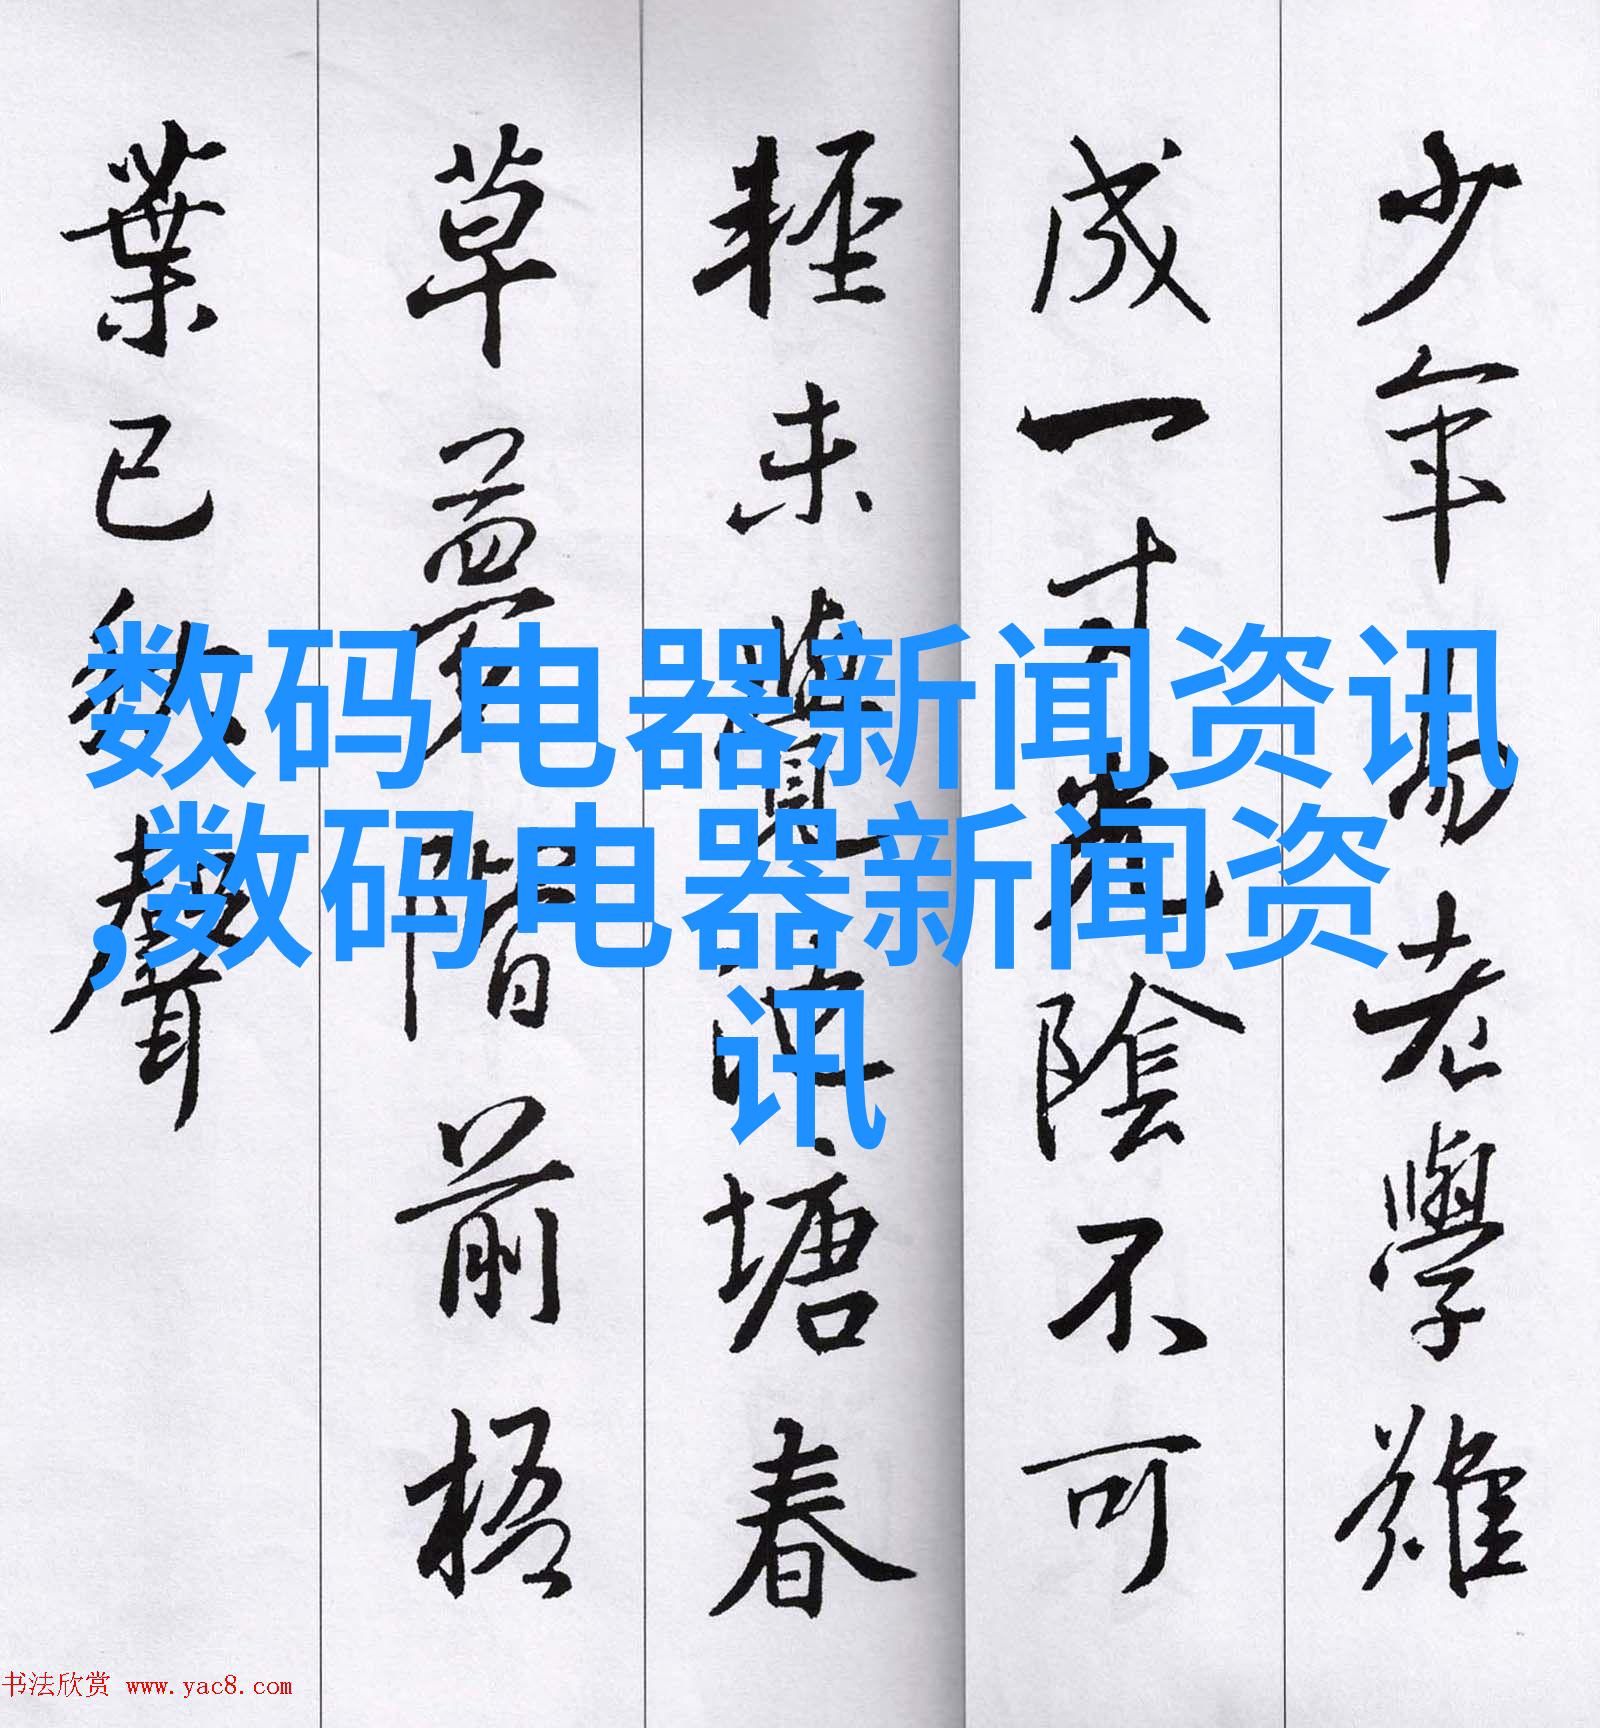 少年易老學難
成一寸光陰不可
輕未覺池塘春
草夢階前梧
葉已秋聲
数码电器新闻资讯
,数码电器新闻资
讯
书法欣赏 www.yac8.com